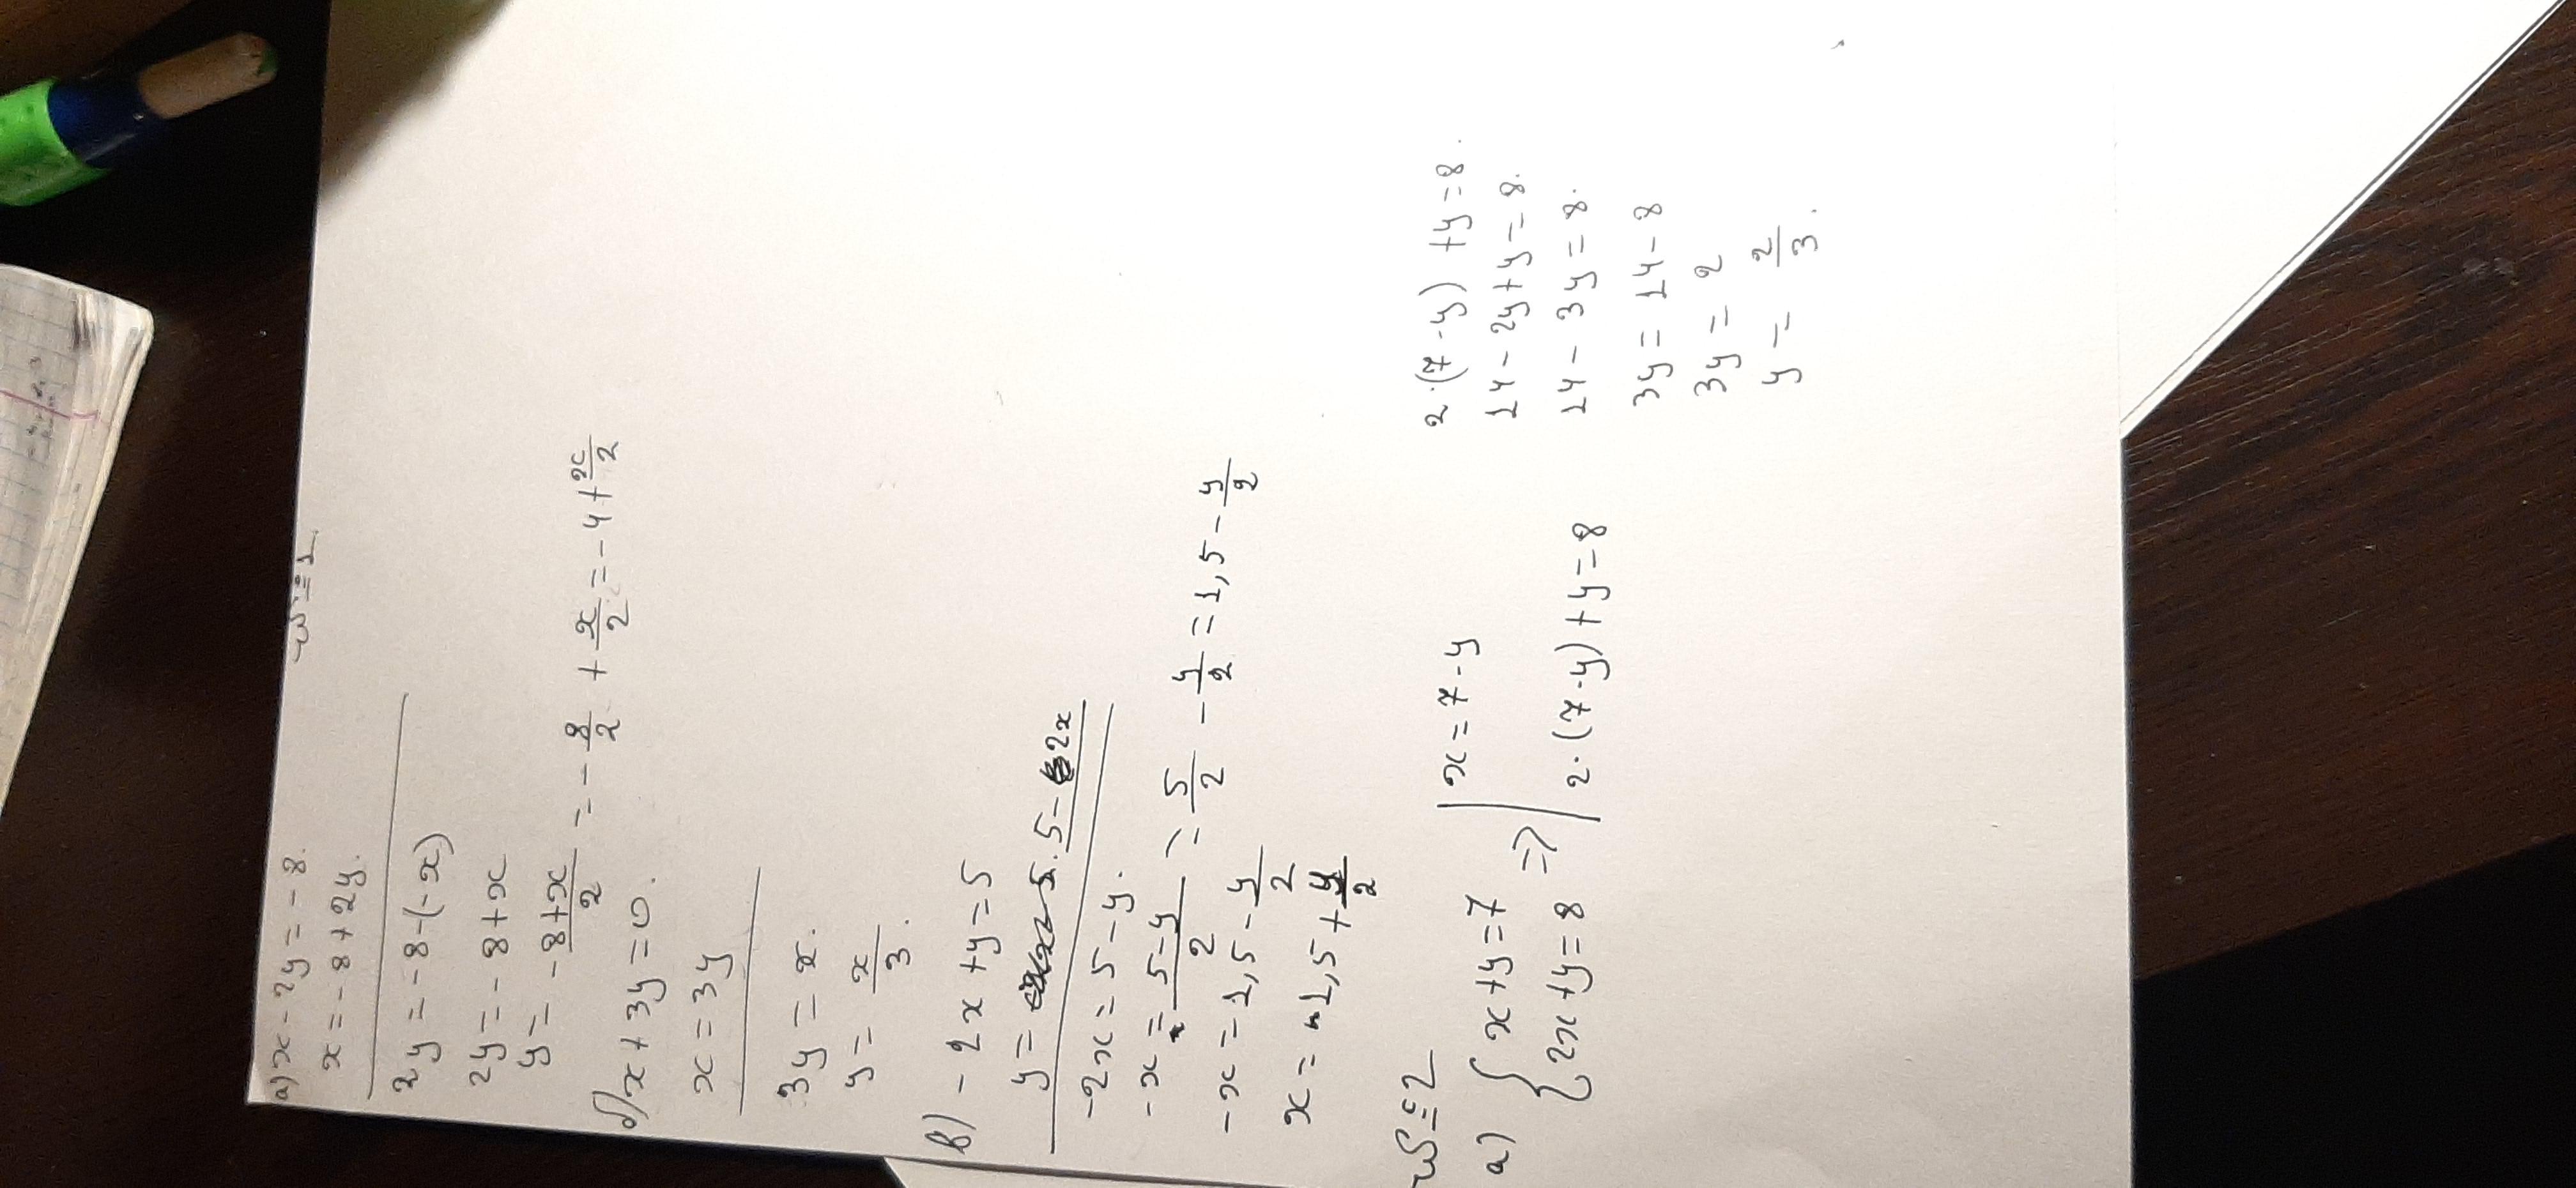 №1.
а) x - 2y = -8.
x = -8 + 2y.
2y = -8 - (-x)
2y = -8 + x
y = -8+x/2 = -8/2 + x/2 = -4 + x/2
б) x + 3y = 0.
x = 3y
3y = x.
y = x/3.
в) -2x + y = 5
y = 5 - 2x
-2x = 5 - y.
-x = 5-y/2 = 5/2 - y/2 = 1,5 - y/2
-x = 1,5 - y/2
x = -1,5 + y/2
№2
а) { x + y = 7 => | x = 7 - y
{ 2x + y = 8 | 2·(7-y) + y = 8
2·(7-y) + y = 8.
14 - 2y + y = 8.
14 - 3y = 8.
3y = 14 - 8
3y = 2
y = 2/3.